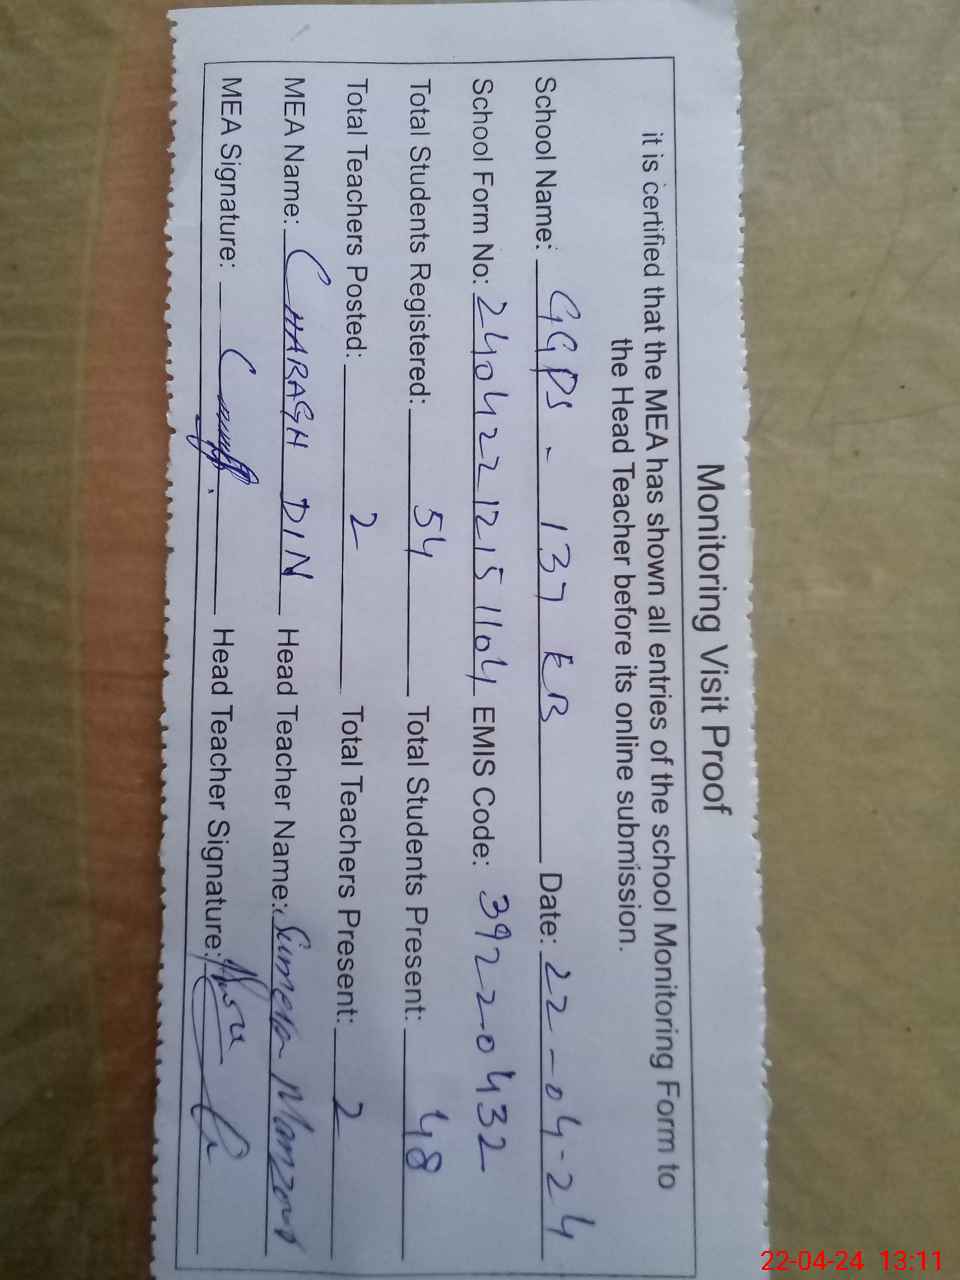 Monitoring Visit Proof
it is certified that the MEA has shown all entries of the school Monitoring Form to
the Head Teacher before its online submission.
School Name: GGPS - 137 EB Date: 22-04-24
School Form No: 24042212151104 EMIS Code: 39220432
Total Students Registered: 54 Total Students Present: 48
Total Teachers Posted: 2 Total Teachers Present: 2
MEA Name: CHARAGH DIN Head Teacher Name: Sumera Manzoor
MEA Signature: Head Teacher Signature:
22-04-24 13:11